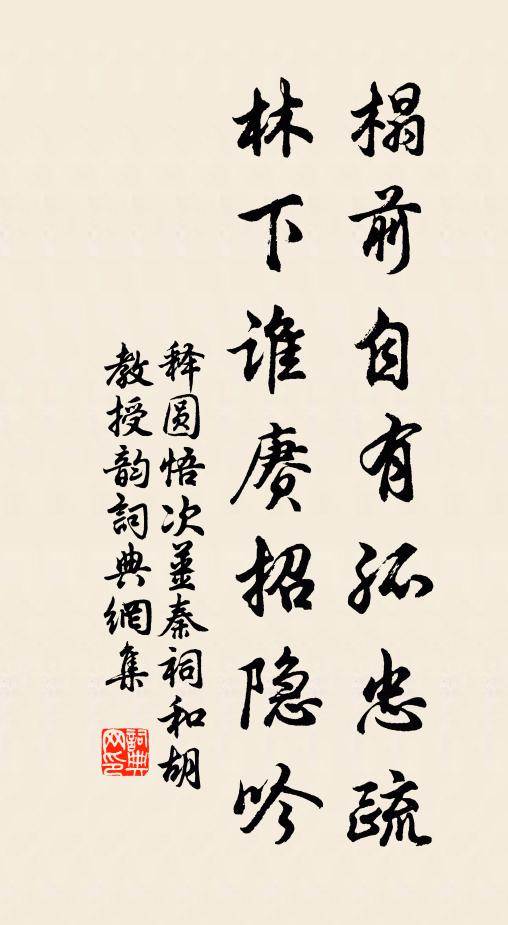 榻前自有孤忠疏
林下谁赓招隐吟
释圆悟次堇秦祠和胡
教授韵詞典網集
詞典网印